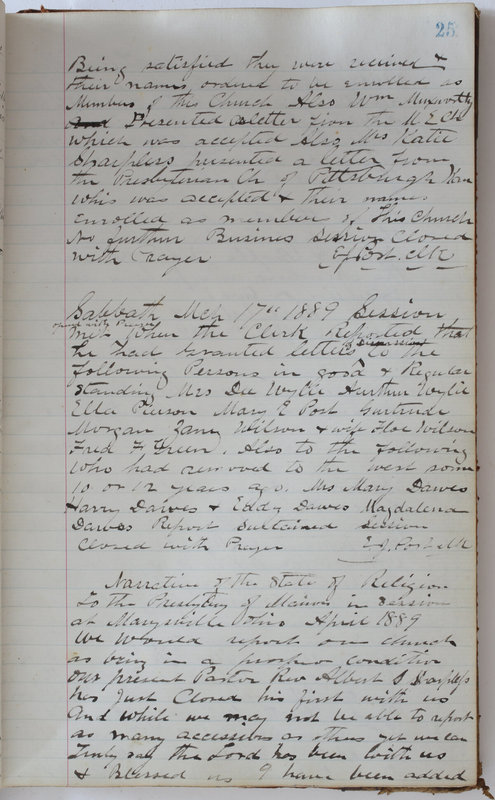 25
Being satisfied they were received &
their names ordered to be enrolled as
Members of this Church Also Wm Muxworthy
and Presented letter from the M E Ch
which was accepted Also Mrs Katie
Sharpless presented a letter from
the Presbyterian Ch of Pittsburgh
whis was accepted & their names
enrolled as member of This Church
No further Busines Session Closed
with Prayer E J Post. Clk
Sabbath Mch 17" 1889 Session
opened with Prayer
met when the Clerk Reported that
he had Granted letters of Dismission to the
following Persons in good & Regular
Standing Mrs Dee Wylie Wylie
Ella Pierson Mary E Post Gertrude
Morgan Zane Wilson & wife Floe Wilson
Fred F Green. Also to the following
who had removed to the West some
10 or 12 years ago. Ms Mary Dawes
Harry Dawes & Eddy Dawes Magdalena
Dawes Report Sustained Session
Closed with Prayer E J. Post Clk
Narrative of the State of Religion
to the Presbytery of Marion in Session
at Marysville Ohio April 1889
We would report our church
as being in a condition
Our present Pastor Rev Albert Sharpless
has Just Closed his first with us
And while we may not be able to report
as many as others yet we can
Truly say the Lord has been with us
& Blessed us 9 have been added